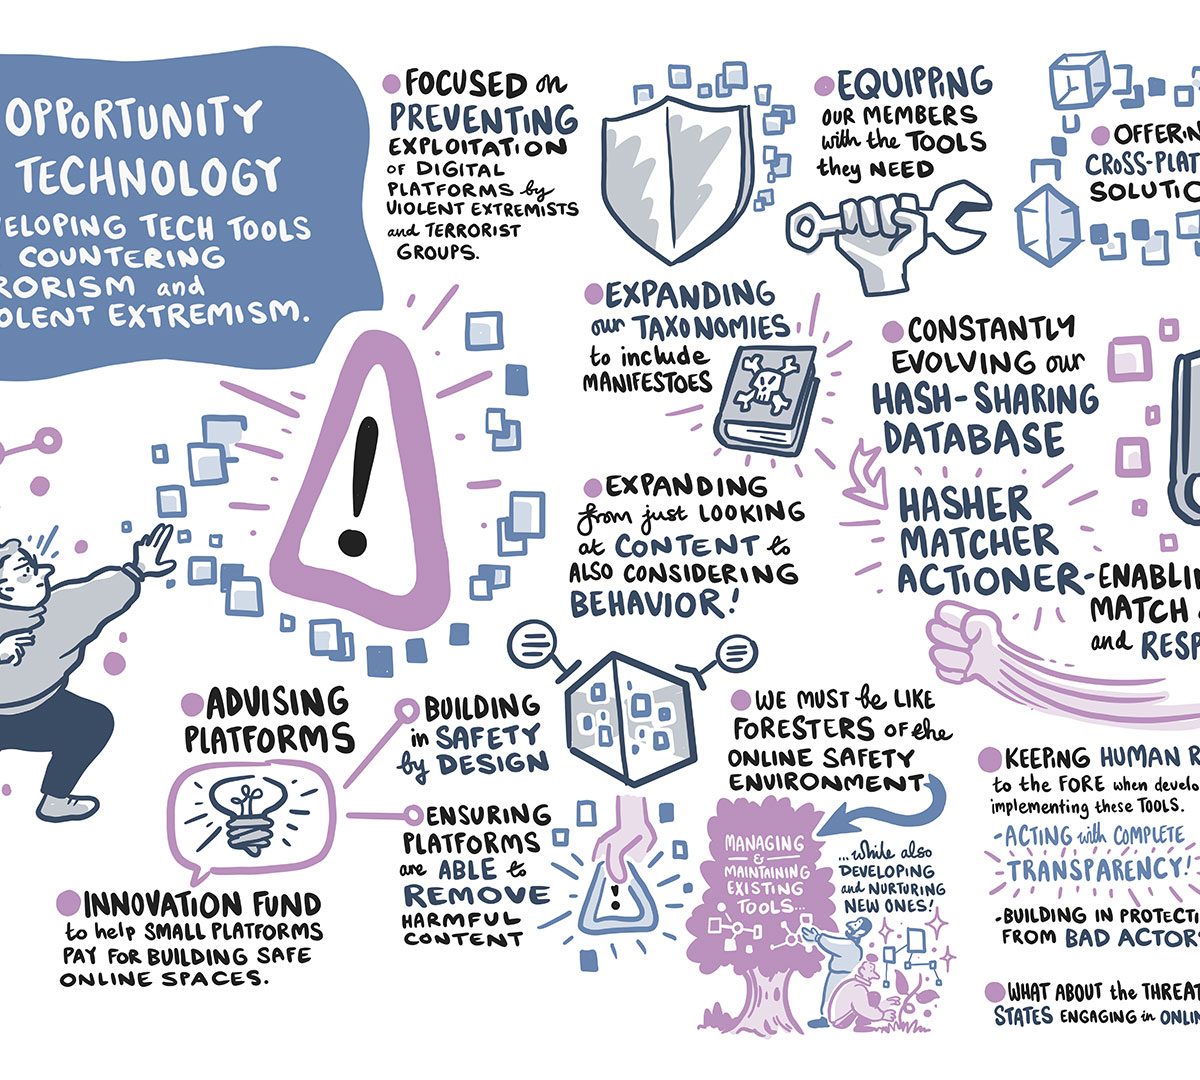 OPPORTUNITY
TECHNOLOGY
TECH TOOLS
COUNTERING
and
EXTREMISM.
FOCUSED on
PREVENTING
EXPLOITATION
OF DIGITAL
PLATFORMS by
VIOLENT EXTREMISTS
and TERRORIST
GROUPS.
EQUIPPING
OUR MEMBERS
with the TOOLS
they NEED
SOLUTIO
EXPANDING
our TAXONOMIES
to include
MANIFESTOES
CONSTANTLY
EVOLVING our
HASH-SHARING
DATABASE
EXPANDING
from just LOOKING
at CONTENT to
ALSO CONSIDERING
BEHAVIOR!
HASHER
MATCHER
ACTIONER-ENABLIN
MATCH
and RESP
ADVISING
PLATFORMS
BUILDING
in SAFETY
by DESIGN
ENSURING
PLATFORMS
are ABLE to
REMOVE
HARMFUL
CONTENT
INNOVATION FUND
to help SMALL PLATFORMS
PAY FOR BUILDING SAFE
ONLINE SPACES.
WE MUST be LIKE
FORESTERS of the
ONLINE SAFETY
ENVIRONMENT
MANAGING
&
MAINTAINING
EXISTING
TOOLS...
...while also
DEVELOPING
and NURTURING
NEW ONES!
KEEPING HUMAN R
to the FORE when develo
implementing these TOOLS.
-ACTING with COMPLETE
TRANSPARENCY!
-BUILDING IN PROTECTI
FROM BAD ACTOR
WHAT ABOUT the THREAT
STATES ENGAGING in ONLIN